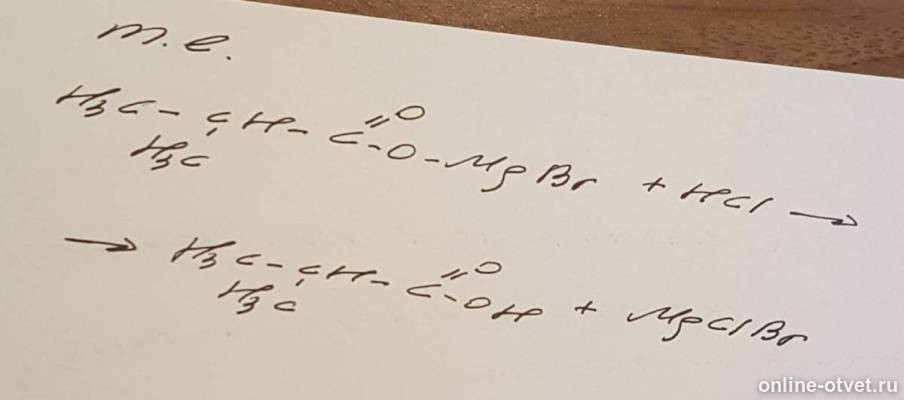 т.е.
H₃C – CH – C = O
H₃C – O – MgBr + HCl →
→ H₃C – CH – C = O
H₃C – OH + MgClBr
online-otvet.ru